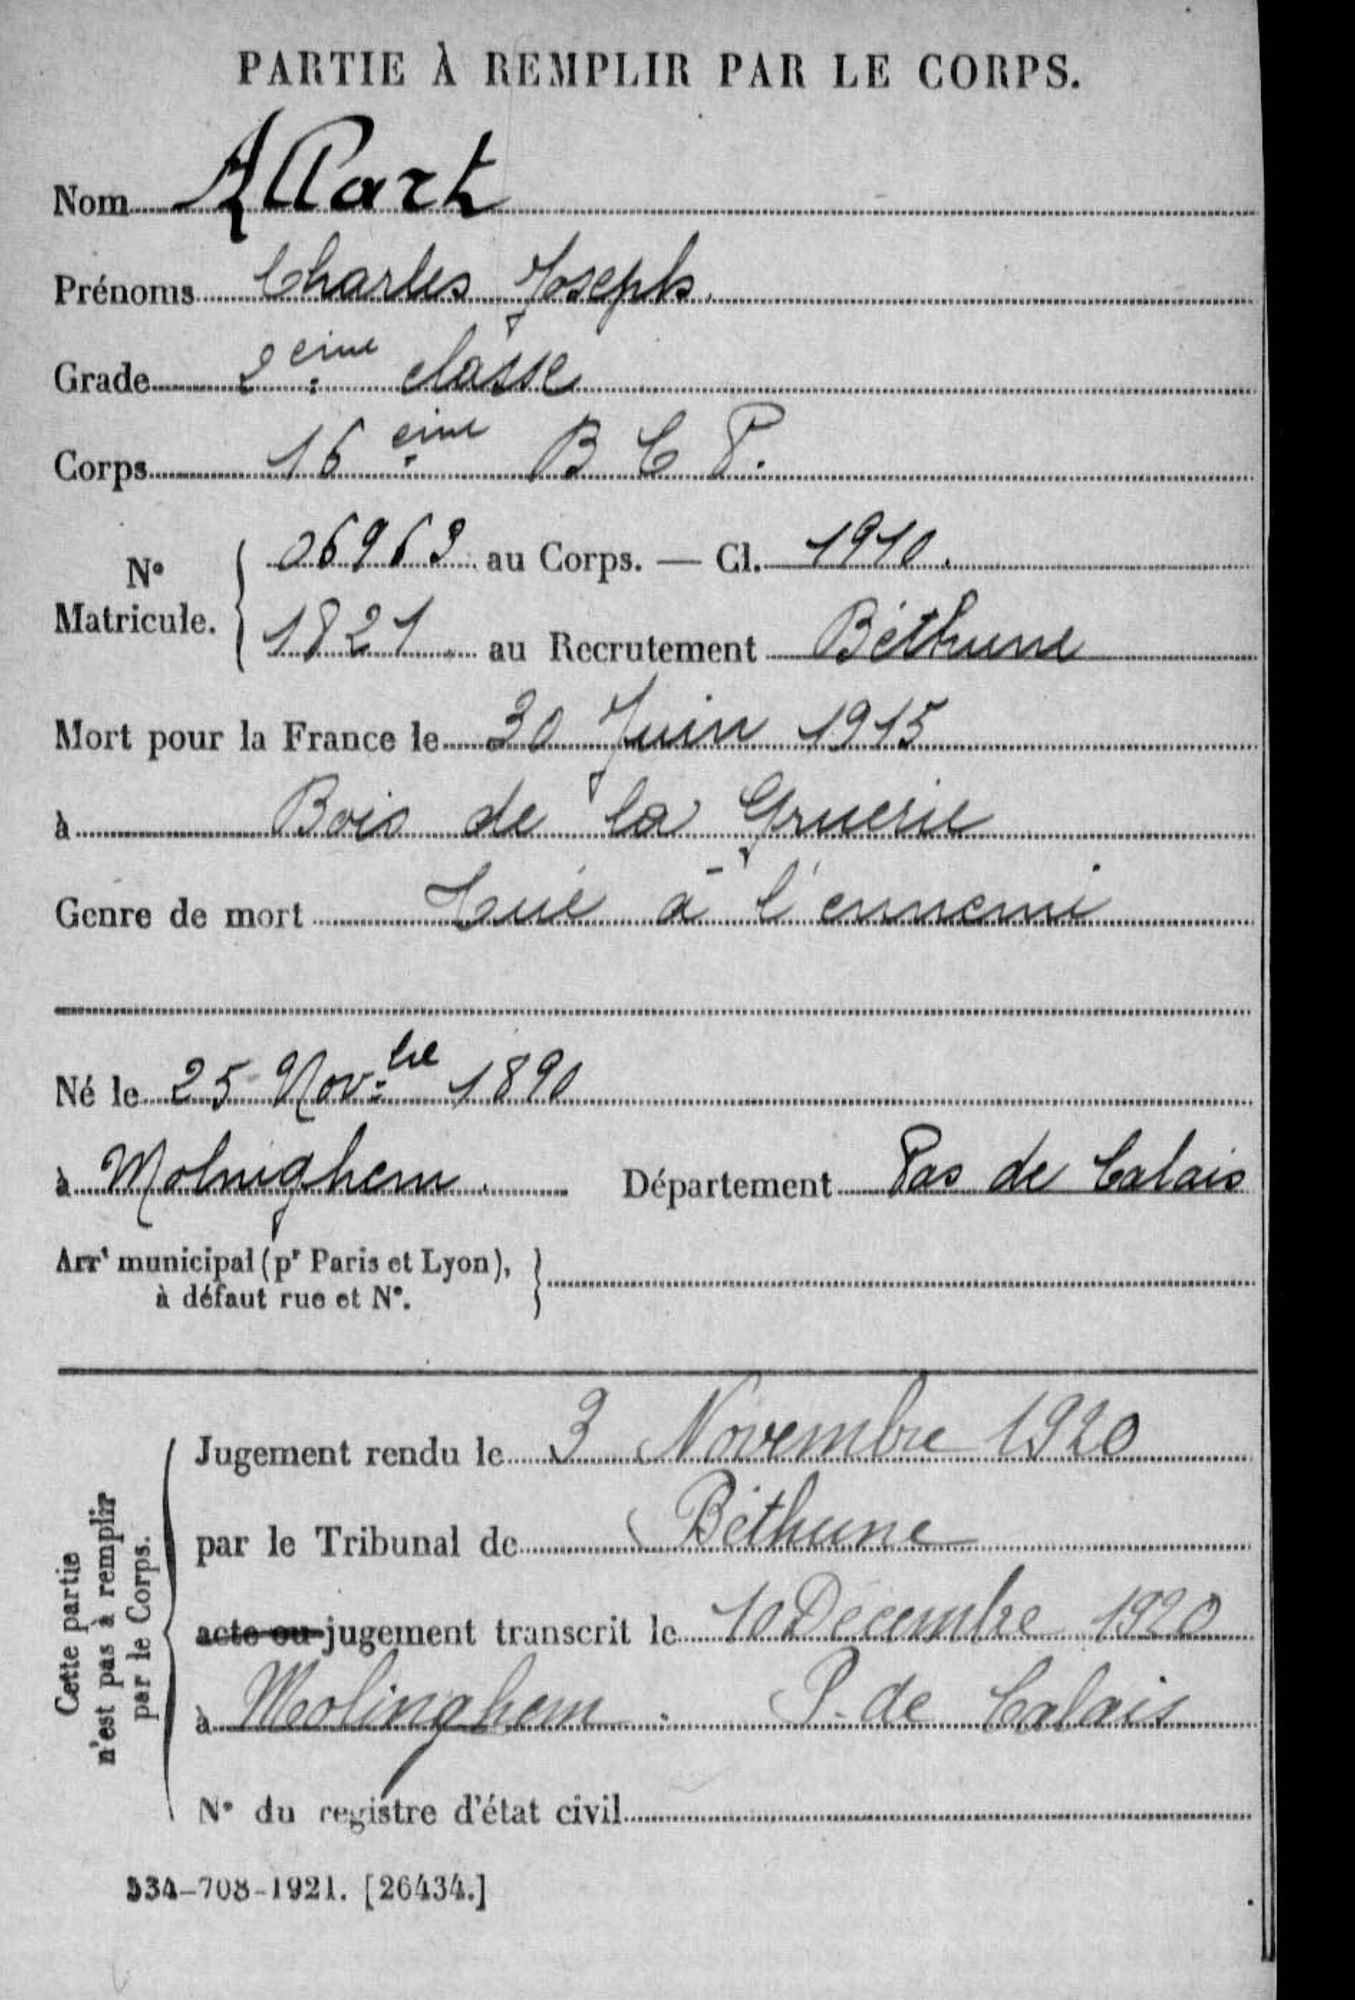 PARTIE À REMPLIR PAR LE CORPS.
Nom Allart
Prénoms Charles Joseph
Grade 2 eme classe
Corps 16 eme B C P.
N° Matricule. 06963 au Corps. — Cl. 1910.
1821 au Recrutement Béthune
Mort pour la France le 30 Juin 1915
à Bois de la Gruerie
Genre de mort Tué à l'ennemi
Né le 25 Nov.bre 1890
à Molnighem. Département Pas de Calais
Arrt municipal (pr Paris et Lyon),
à défaut rue et N°.
Jugement rendu le 3 Novembre 1920
par le Tribunal de Béthune
acte ou jugement transcrit le 10 Décembre 1920
à Molinghem. P. de Calais
N° du registre d'état civil
Cette partie
n'est pas à remplir
par le Corps.
534-708-1921. [26434.]